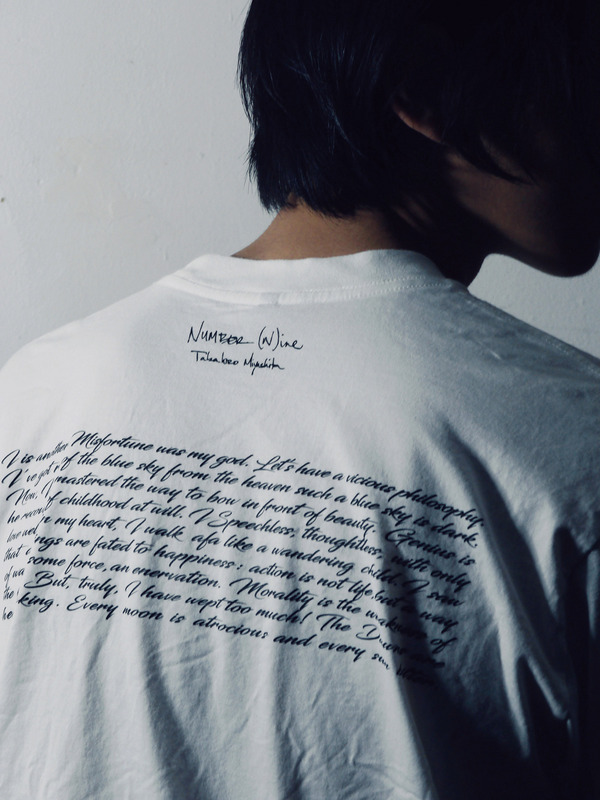 NUMBER (N)ine
Takahiro Miyashita
I is another Misfortune was my god. Let's have a vicious philosophy.
I've got of the blue sky from the heaven such a blue sky is dark.
Now, I mastered the way to bow in front of beauty. Genius is
he childhood at will. I Speechless, thoughtless, with only
love my heart, I walk afa like a wandering child. I saw
that ngs are fated to happiness: action is not life but a way
of wa some force, an enervation. Morality is the weakness of
the But, truly, I have wept too much! The Dawns are
he king. Every moon is atrocious and every sun